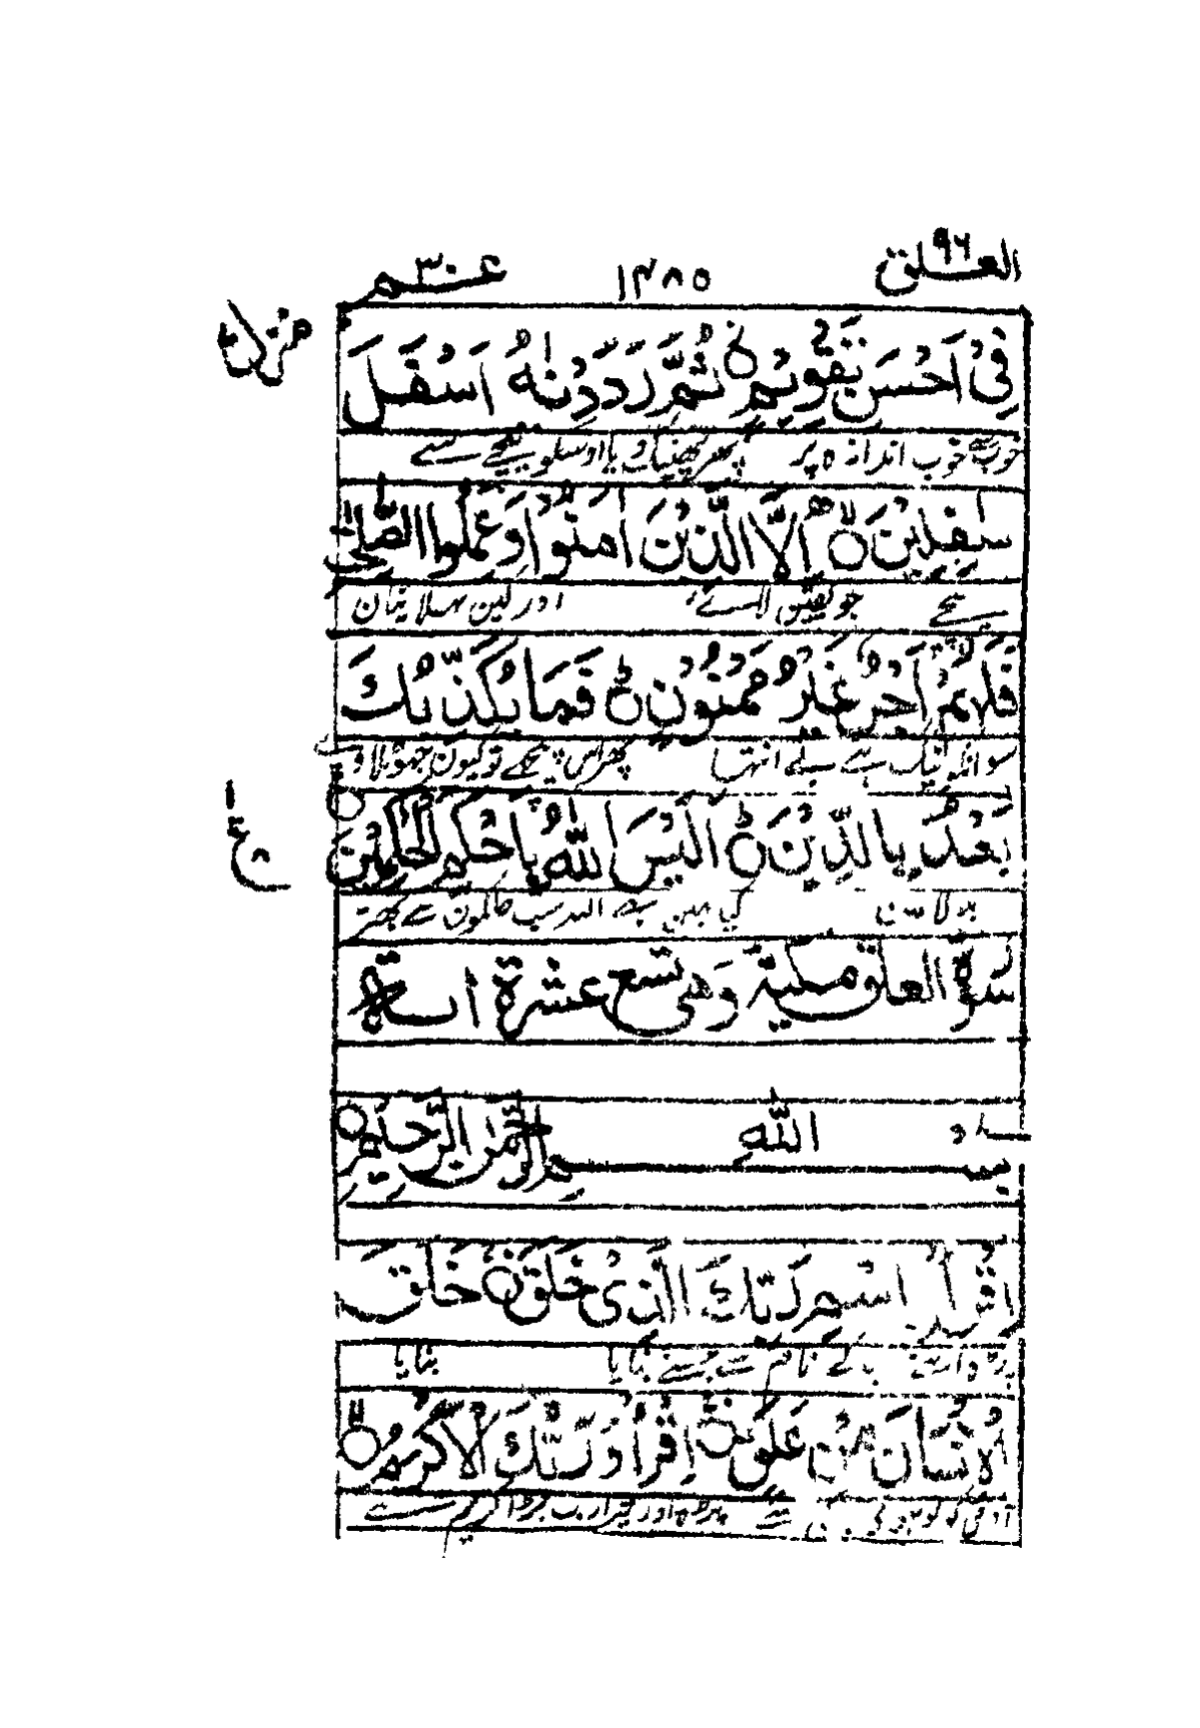 العلق ٩٦ ١٤٨٥ عـم ٣٠
منزل
فِیْۤ اَحْسَنِ تَقْوِیْمٍ ثُمَّ رَدَدْنٰهُ اَسْفَلَ
خوب سے خوب اندازہ پر پھر پھینک دیا اوسکو نیچے سے
سٰفِلِیْنَ اِلَّا الَّذِیْنَ اٰمَنُوْا وَ عَمِلُوا الصّٰلِحٰتِ
نیچے جو یقین لائے اور کین بھلائیان
فَلَهُمْ اَجْرٌ غَیْرُ مَمْنُوْنٍ فَمَا یُكَذِّبُكَ
سو انکو نیگ ہے بے انتہا پھر اس پیچھے تو کیون جھوٹلاوے
بَعْدُ بِالدِّیْنِ اَلَیْسَ اللّٰهُ بِاَحْكَمِ الْحٰكِمِیْنَ
ع ١ ٨
بدلا کیا نہین ہے اللہ سب حاکمون سے بہتر
سُوْرَةُ الْعَلَقِ مَكِّیَّةٌ وَهِیَ تِسْعَ عَشْرَةَ اٰیَةً
بِسْمِ اللّٰهِ الرَّحْمٰنِ الرَّحِیْمِ
اِقْرَاْ بِاسْمِ رَبِّكَ الَّذِیْ خَلَقَ خَلَقَ
پڑہ اپنے رب کے نام سے جسنے بنایا بنایا
الْاِنْسَانَ مِنْ عَلَقٍ اِقْرَاْ وَ رَبُّكَ الْاَكْرَمُ
آدمی کو لہو کی سے پڑہ اور تیرا رب بڑا کریم ہے